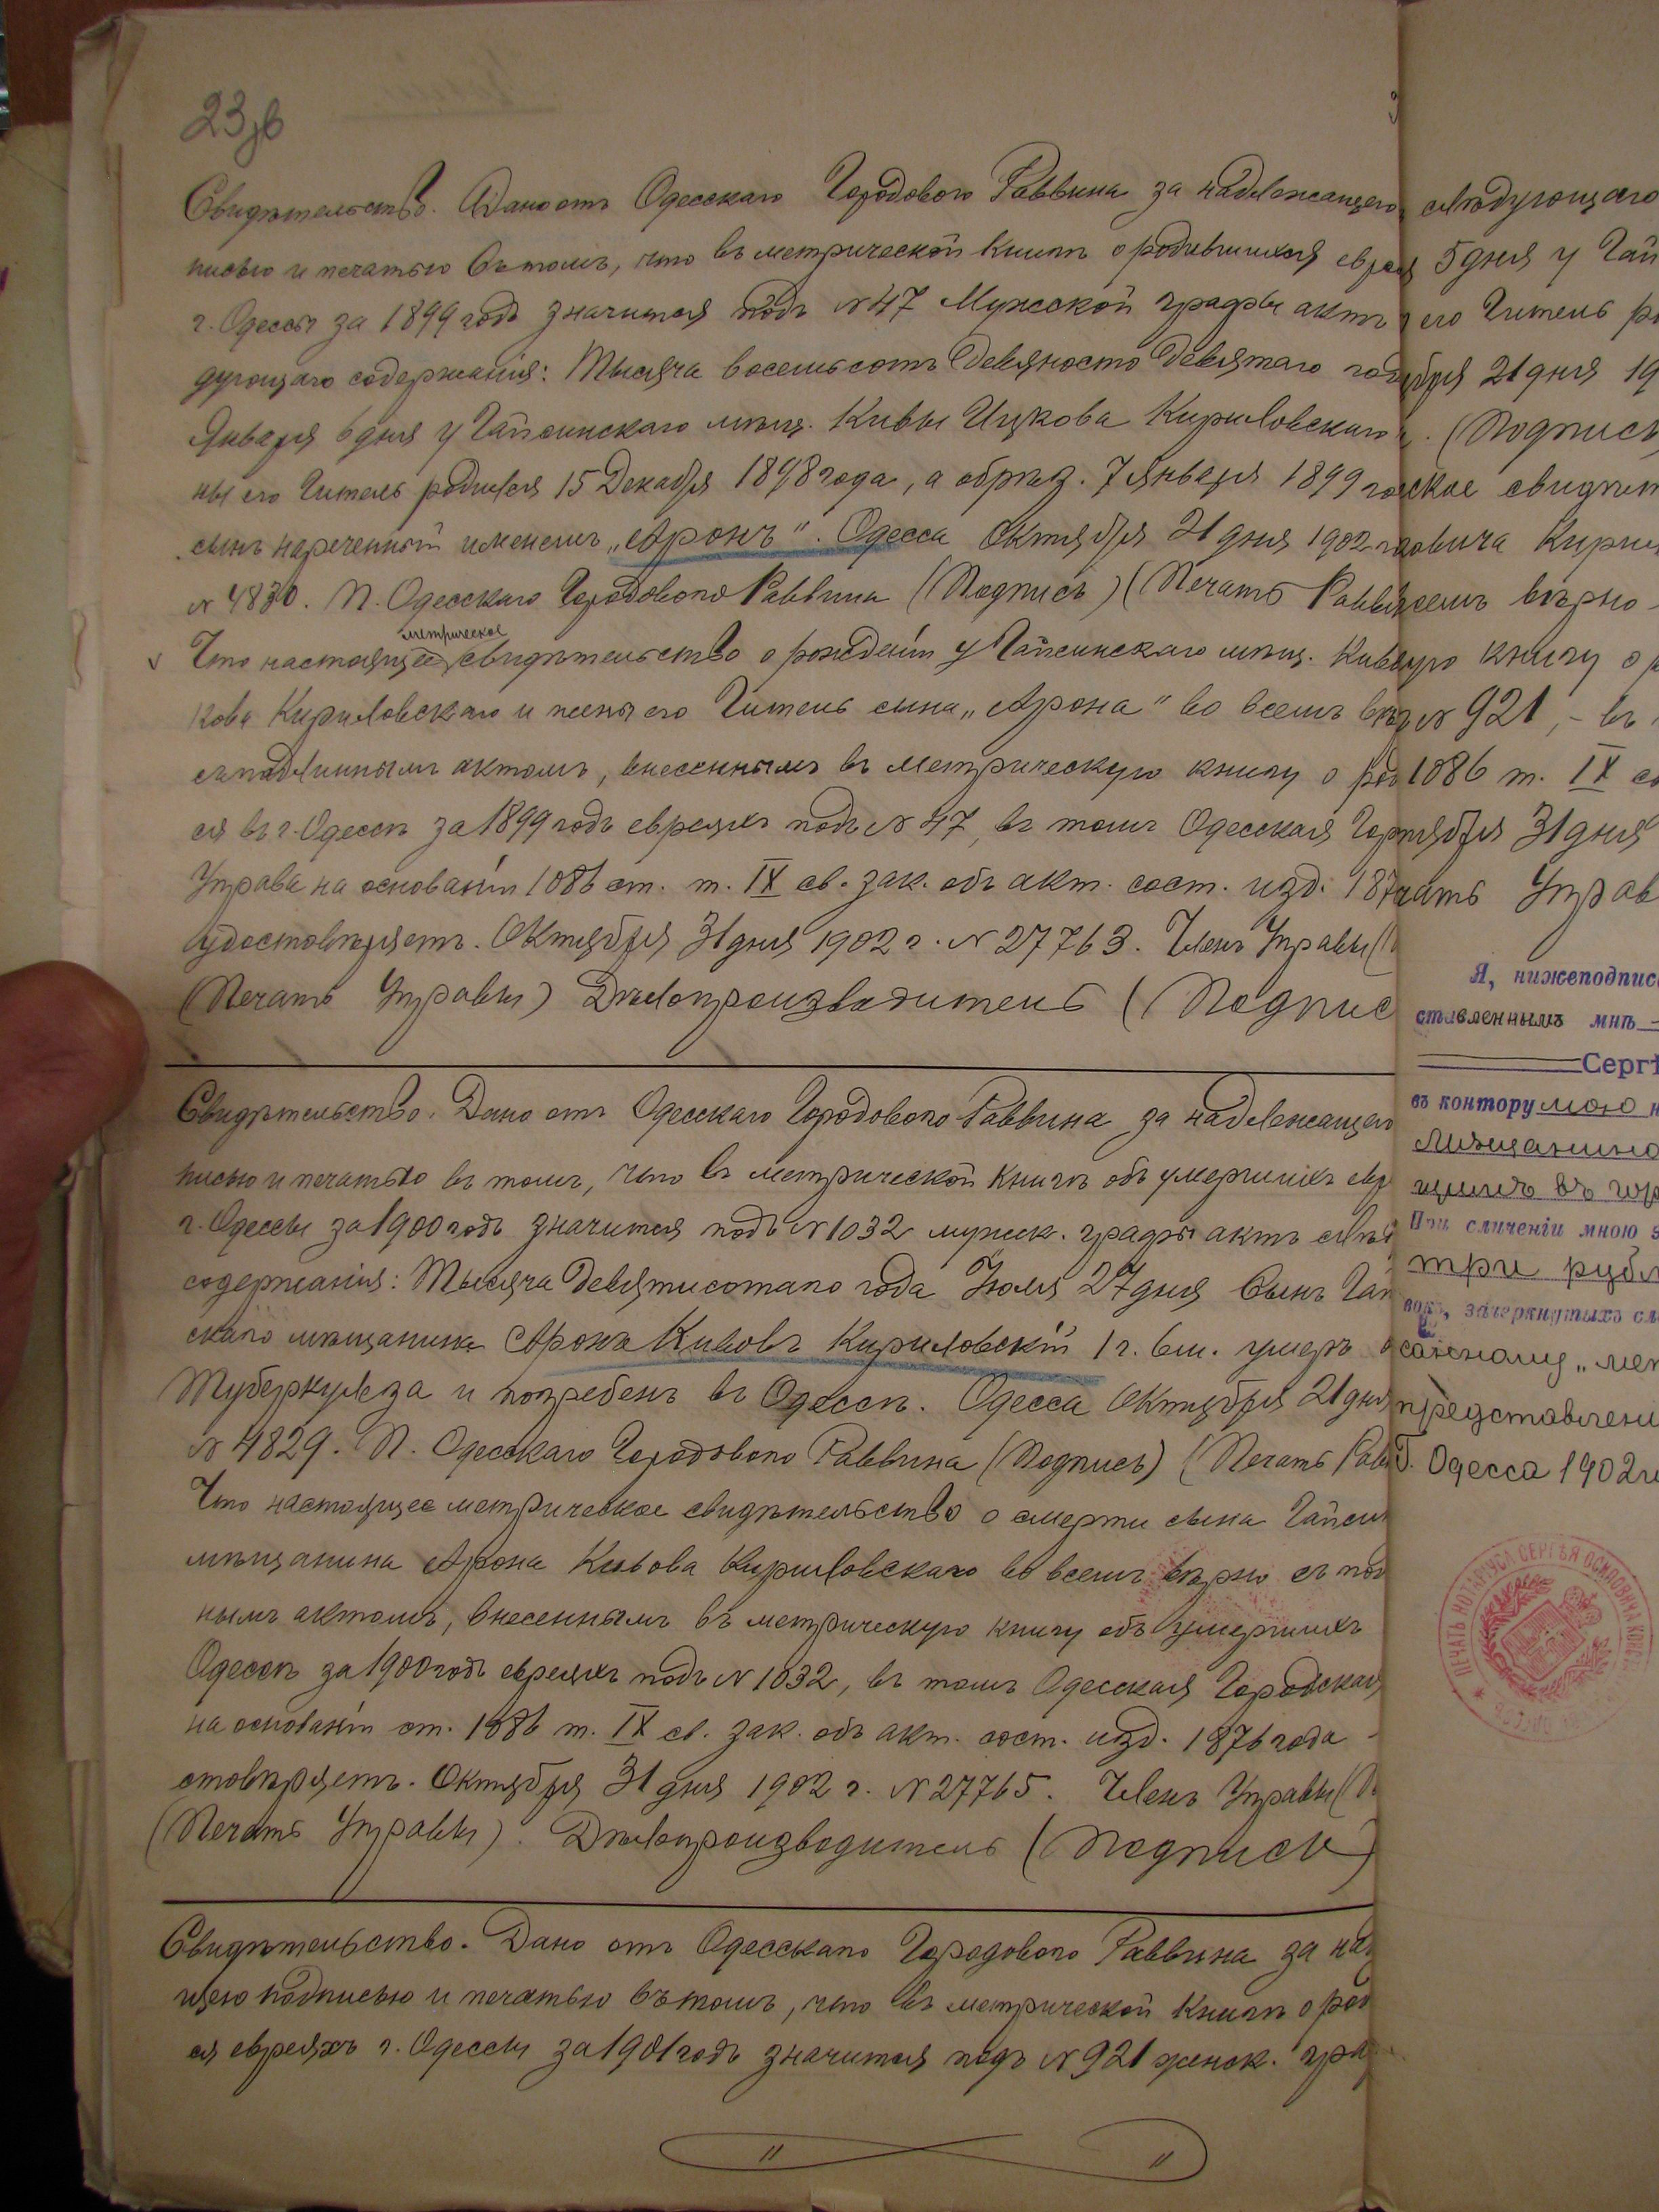 23 об
Свидѣтельство. Дано отъ Одесскаго Городового Раввина за надлежащего
писью и печатью въ томъ, что въ метрической книгѣ о родившихся евреях
г. Одессы за 1899 годъ значится подъ № 47 Мужской графы актъ
дующаго содержанія: Тысяча восемьсотъ девяносто девятаго года
Января 6 дня у Гайсинскаго мѣщ. Кивы Ицкова Кириловскаго
ны его Гитель родился 15 Декабря 1898 года, а обрѣз. 7 Января 1899 го
сынъ нареченный именемъ „Аронъ". Одесса Октября 21 дня 1902 г
№ 4830. П. Одесскаго Городового Раввина (Подпись) (Печать Равви
метрическое
Что настоящее свидѣтельство о рожденіи у Гайсинскаго мѣщ. Кивы
кова Кириловскаго и жены его Гитель сына „Арона" во всемъ вѣр
съ подлиннымъ актомъ, внесеннымъ въ метрическую книгу о род
ся въ г. Одессѣ за 1899 годъ евреяхъ подъ № 47, въ томъ Одесская Гор
Управа на основаніи 1086 ст. т. IX св. зак. объ акт. сост. изд. 187
удостовѣряетъ. Октября 31 дня 1902 г. № 27763. Членъ Управы (П
(Печать Управы) Дѣлопроизводитель (Подпис
Свидѣтельство. Дано отъ Одесскаго Городового Раввина за надлежащего
писью и печатью въ томъ, что въ метрической книгѣ объ умершихъ евр
г. Одессы за 1900 годъ значится подъ № 1032 мужск. графы актъ слѣд
содержанія: Тысяча девятисотаго года Іюля 27 дня Сынъ Гай
скаго мѣщанина Аронъ Кивовъ Кириловскій 1 г. 6 м. умеръ о
Туберкулеза и погребенъ въ Одессѣ. Одесса Октября 21 дня
№ 4829. П. Одесскаго Городового Раввина (Подпись) (Печать Равв
Что настоящее метрическое свидѣтельство о смерти сына Гайсин
мѣщанина Арона Кивова Кириловскаго во всемъ вѣрно съ под
нымъ актомъ, внесеннымъ въ метрическую книгу объ умершихъ
Одессѣ за 1900 годъ евреяхъ подъ № 1032, въ томъ Одесская Городская
на основаніи ст. 1086 т. IX св. зак. объ акт. сост. изд. 1876 года
стовѣряетъ. Октября 31 дня 1902 г. № 27765. Членъ Управы (П
(Печать Управы). Дѣлопроизводитель (Подпись)
Свидѣтельство. Дано отъ Одесскаго Городового Раввина за над
щею подписью и печатью въ томъ, что въ метрической книгѣ о род
ся евреяхъ г. Одессы за 1901 годъ значится подъ № 921 женск. гра
слѣдующаго
5 дня у Гай
его Гитель р
бря 21 дня 19
(Подпись
ское свидѣт
овича Кири
семъ вѣрно
ую книгу о р
№ 921, - въ
1086 т. IX с
тября 31 дня
чать Управ
Я, нижеподпис
ставленнымъ мнѣ
Сергѣ
въ контору мою н
Мѣщанино
щимъ въ гор
При сличеніи мною э
три рубл
вок, зачеркнутыхъ сл
санному „мет
представлен
Г. Одесса 1902 г
ПЕЧАТЬ НОТАРІУСА СЕРГѢЯ ОСИПОВИЧА